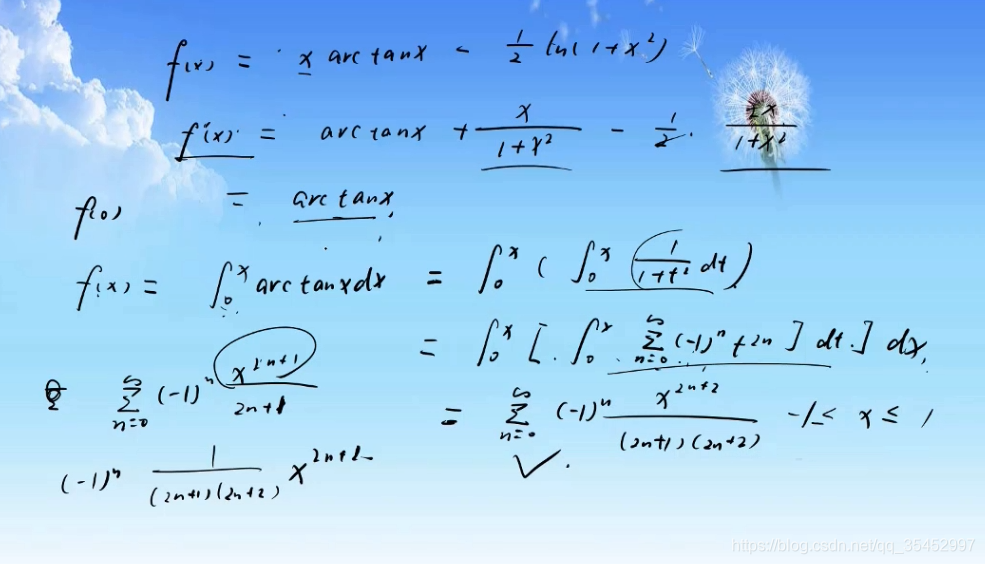 f(x) = x arctanx - 1/2 ln(1+x²)
f'(x) = arctanx + x/(1+x²) - 1/2 · 2x/(1+x²)
f(0) = arctanx
f(x) = ∫₀ˣ arctanxdx = ∫₀ˣ ( ∫₀ˣ 1/(1+t²) dt )
= ∫₀ˣ [ ∫₀ˣ ∑_{n=0}^{∞} (-1)ⁿ t2n ] dt ] dx
∑_{n=0}^{∞} (-1)ⁿ x^{2n+1}/(2n+1)
= ∑_{n=0}^{∞} (-1)ⁿ x^{2n+2}/((2n+1)(2n+2)) -1 ≤ x ≤ 1
(-1)ⁿ 1/((2n+1)(2n+2)) x^{2n+2}
https://blog.csdn.net/qq_35452997